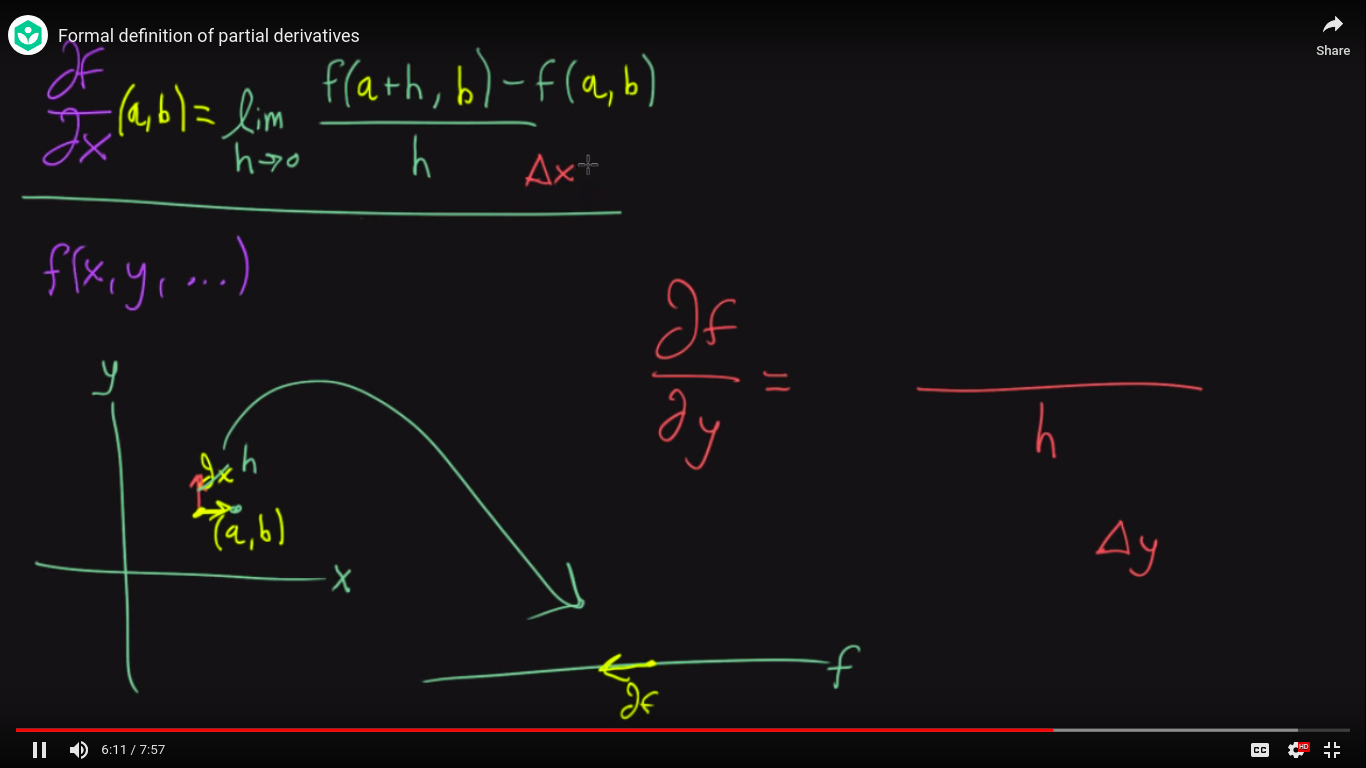 Formal definition of partial derivatives
Share
∂f/∂x (a,b) = lim h→0 f(a+h, b) - f(a,b) / h
Δx
f(x, y, ...)
∂f/∂y = / h
y
∂x h
(a,b)
x
Δy
f
∂f
6:11 / 7:57
CC
HD